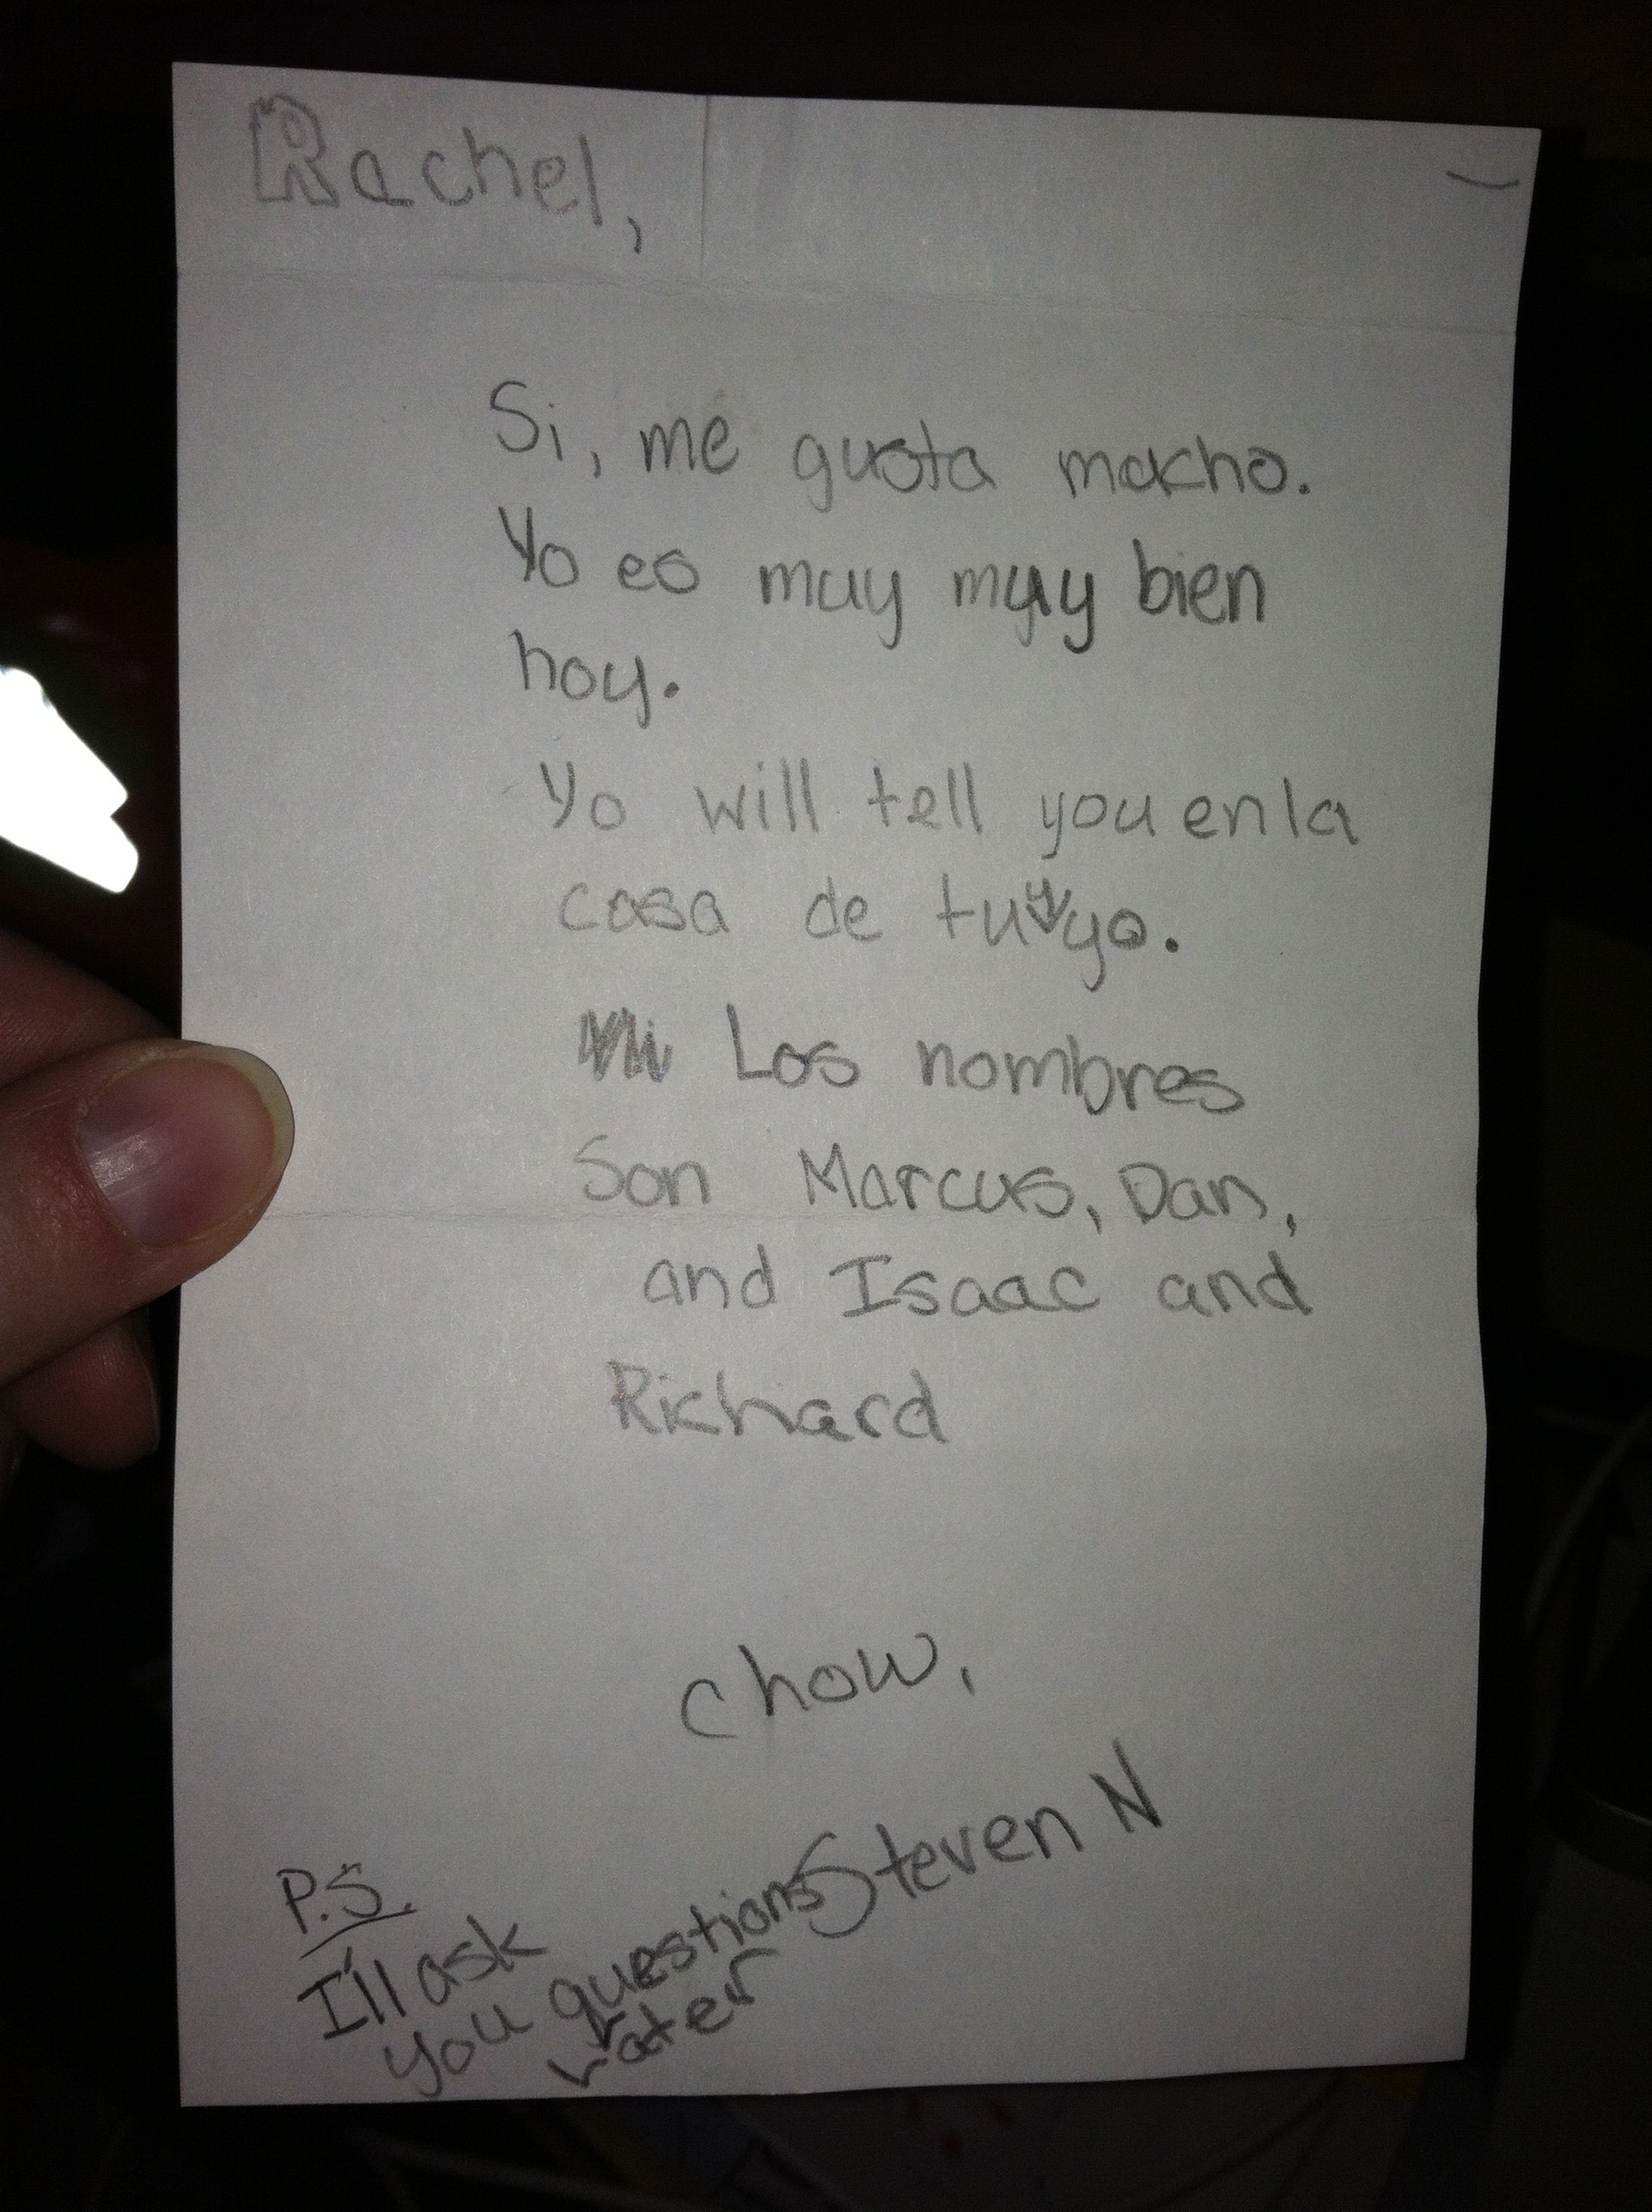 Rachel,
Si, me gusta mucho.
Yo es muy muy bien
hoy.
Yo will tell you en la
casa de tu y yo.
Los nombres
Son Marcus, Dan,
and Isaac and
Richard
Chow,
Steven N
P.S.
I'll ask
you questions
Later